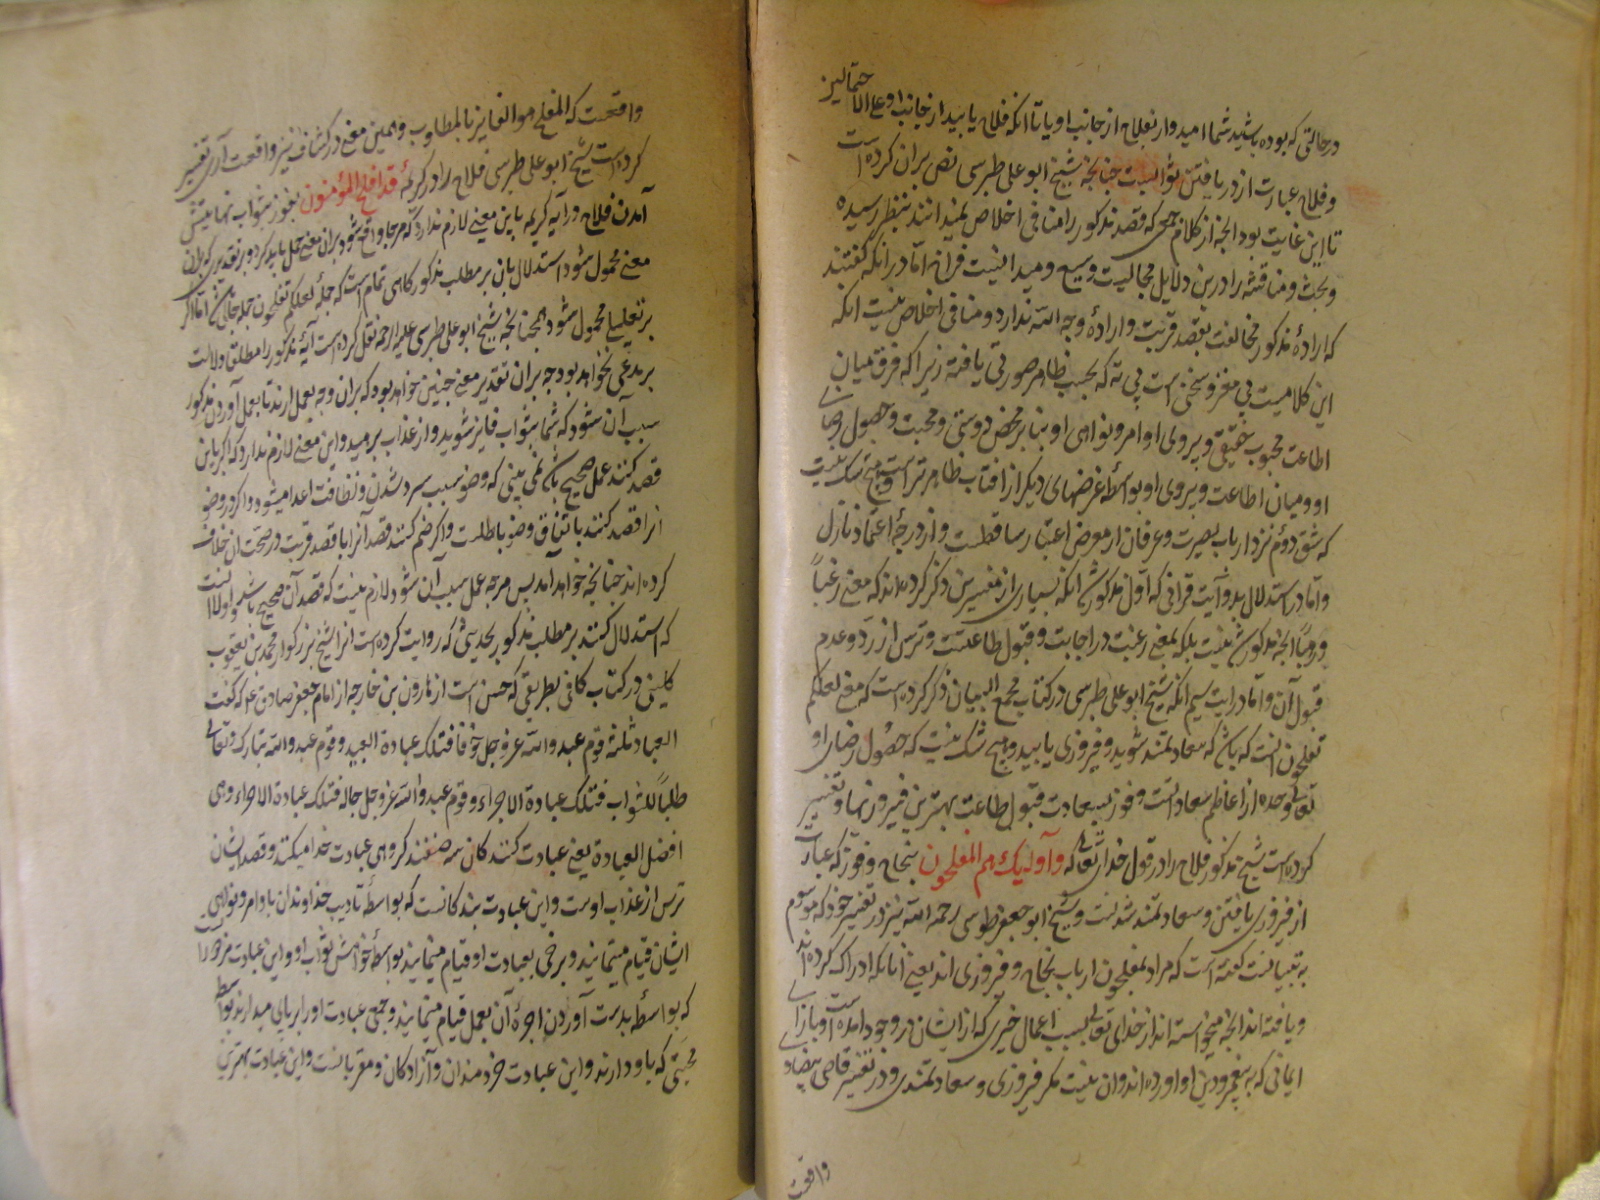 در حالتی که بوده باشید شما امیدوار بفلاح از جانب او یا تا آنکه فلاح یابید از جانب او و علی الاحتمالین
و فلاح عبارت از دریافتن ثوابست چنانچه شیخ ابو علی طبرسی نص بران کرده است
تا این غایت بود آنچه از کلام جمعی که قصد مذکور را منافی اخلاص نمیدانند بنظر رسیده
و بحث و مناقشه را درین دلایل مجالیست وسیع و میدانیست فراخ اما در آنکه گفتند
که اراده مذکور مخالفت بقصد قربت و اراده وجه الله ندارد و منافی اخلاص نیست آنکه
این کلامیست بی مغز و سخنی است بی ته که بحسب ظاهر صورتی یافته زیرا که فرق میان
اطاعت محبوب حقیقی و پیروی اوامر و نواهی او بنابر محض دوستی و محبت و حصول رضای
او و میان اطاعت و پیروی او بواسطه غرضهای دیکر از آفتاب ظاهرتر است و هیچ شک نیست
که شق دوم نزد ارباب بصیرت و عرفان از معرض اعتبار ساقطست و از درجه اعتماد نازل
و اما در استدلال بدو آیت قرآنی که اول مذکور شد آنکه بسیاری از مفسرین ذکر کرده‌اند که معنی رغباً
و رهباً آنچه مذکور شد نیست بلکه بمعنی رغبت در اجابت و قبول طاعتست و ترس از رد و عدم
قبول آن و اما در آیت سیم آنکه شیخ ابو علی طبرسی در کتاب مجمع البیان ذکر کرده است که معنی لعلکم
تفلحون آنست که باشد که سعادتمند شوید و فیروزی یابید و هیچ شک نیست که حصول رضای او
تعالی وحده از اعاظم سعادتست و فوز بسعادت قبول طاعت بهترین فیروزیها و تفسیر
کرده است شیخ مذکور فلاح را در قول خدای تعالی که و اولیک هم المفلحون بنجاح و فوز که عبارت
از فیروزی یافتن و سعادتمند شدنست و شیخ ابو جعفر طوسی رحمه الله نیز در تفسیر خود که موسوم
به تبیانست گفته است که مراد بمفلحون ارباب نجاح و فیروزی اند یعنی آنانکه ادراک کرده اند
و یافته اند آنچه میخواسته اند از خدای تعالی بسبب اعمال خیری که از ایشان در وجود آمده است و بازای
ایمانی که به پیغمبر و دین او آورده اند و آن نیست مکر فیروزی و سعادتمندی و در تفسیر قاضی بیضاوی
واقعست
واقعست که المفلح هو الفایز بالمطلوب و همین معنی در کشاف نیز واقعست آری تفسیر
کرده است شیخ ابو علی طبرسی فلاح را در کریمه قد افلح المؤمنون بفوز بثواب نهایتش
آمدن فلاح در آیه کریمه باین معنی لازم ندارد که هرجا واقع شود بران معنی حمل باید کرد و بر تقدیری که بران
معنی محمول شود استدلال بان بر مطلب مذکور کاهی تمام است که جمله لعلکم تفلحون جمله حالی باشد اما اکر
بر تعلیل محمول شود همچنانچه شیخ ابو علی طبرسی علیه الرحمه نقل کرده است آیه مذکور را مطلق دلالت
بر مدعی نخواهد بود چه بران تقدیر معنی چنین خواهد بود که بران وجه بعمل ارند تا بعمل آوردن مذکور
سبب آن شود که شما بثواب فایز شوید و از عذاب برهید و این معنی لازم ندارد که اکر باین
قصد کنند عمل صحیح باشد نمی بینی که وضو سبب سرد شدن و نظافت اعضا میشود و اکر در وضو
آنرا قصد کنند باتفاق وضو باطلست و اکر ضم کنند قصد آنرا با قصد قربت در صحت ان خلاف
کرده اند چنانچه خواهد آمد پس هرچه عمل سبب آن شود لازم نیست که قصد آن صحیح باشد و اولی آنست
که استدلال کنند بر مطلب مذکور بحدیثی که روایت کرده است آنرا شیخ بزرکوار محمد بن یعقوب
کلینی در کتاب کافی بطریقی که حسن است از هارون بن خارجه از امام جعفر صادق ع که گفت
العباد ثلثة قوم عبدوا الله عز و جل خوفا فتلک عبادة العبید و قوم عبدوا الله تبارک و تعالی
طلباً للثواب فتلک عبادة الاجراء و قوم عبدوا الله عز و جل حبا له فتلک عبادة الاحراء و هی
افضل العبادة یعنی عبادت کنندکان سه صنفند کروهی عبادت خدا میکنند و قصد ایشان
ترس از عذاب اوست و این عبادت بندکانست که بواسطه تادیب خداوندان باوامر و نواهی
ایشان قیام مینمایند و برخی بعبادت او قیام مینمایند بواسطه خواهش ثواب او و این عبادت مزدوران
که بواسطه بدست آوردن اجرت آن بعمل قیام مینمایند و جمعی عبادت او را برپای میدارند بواسطه
محبتی که باو دارند و این عبادت خردمندان و آزادکان و مقربانست و این عبادت بهترین